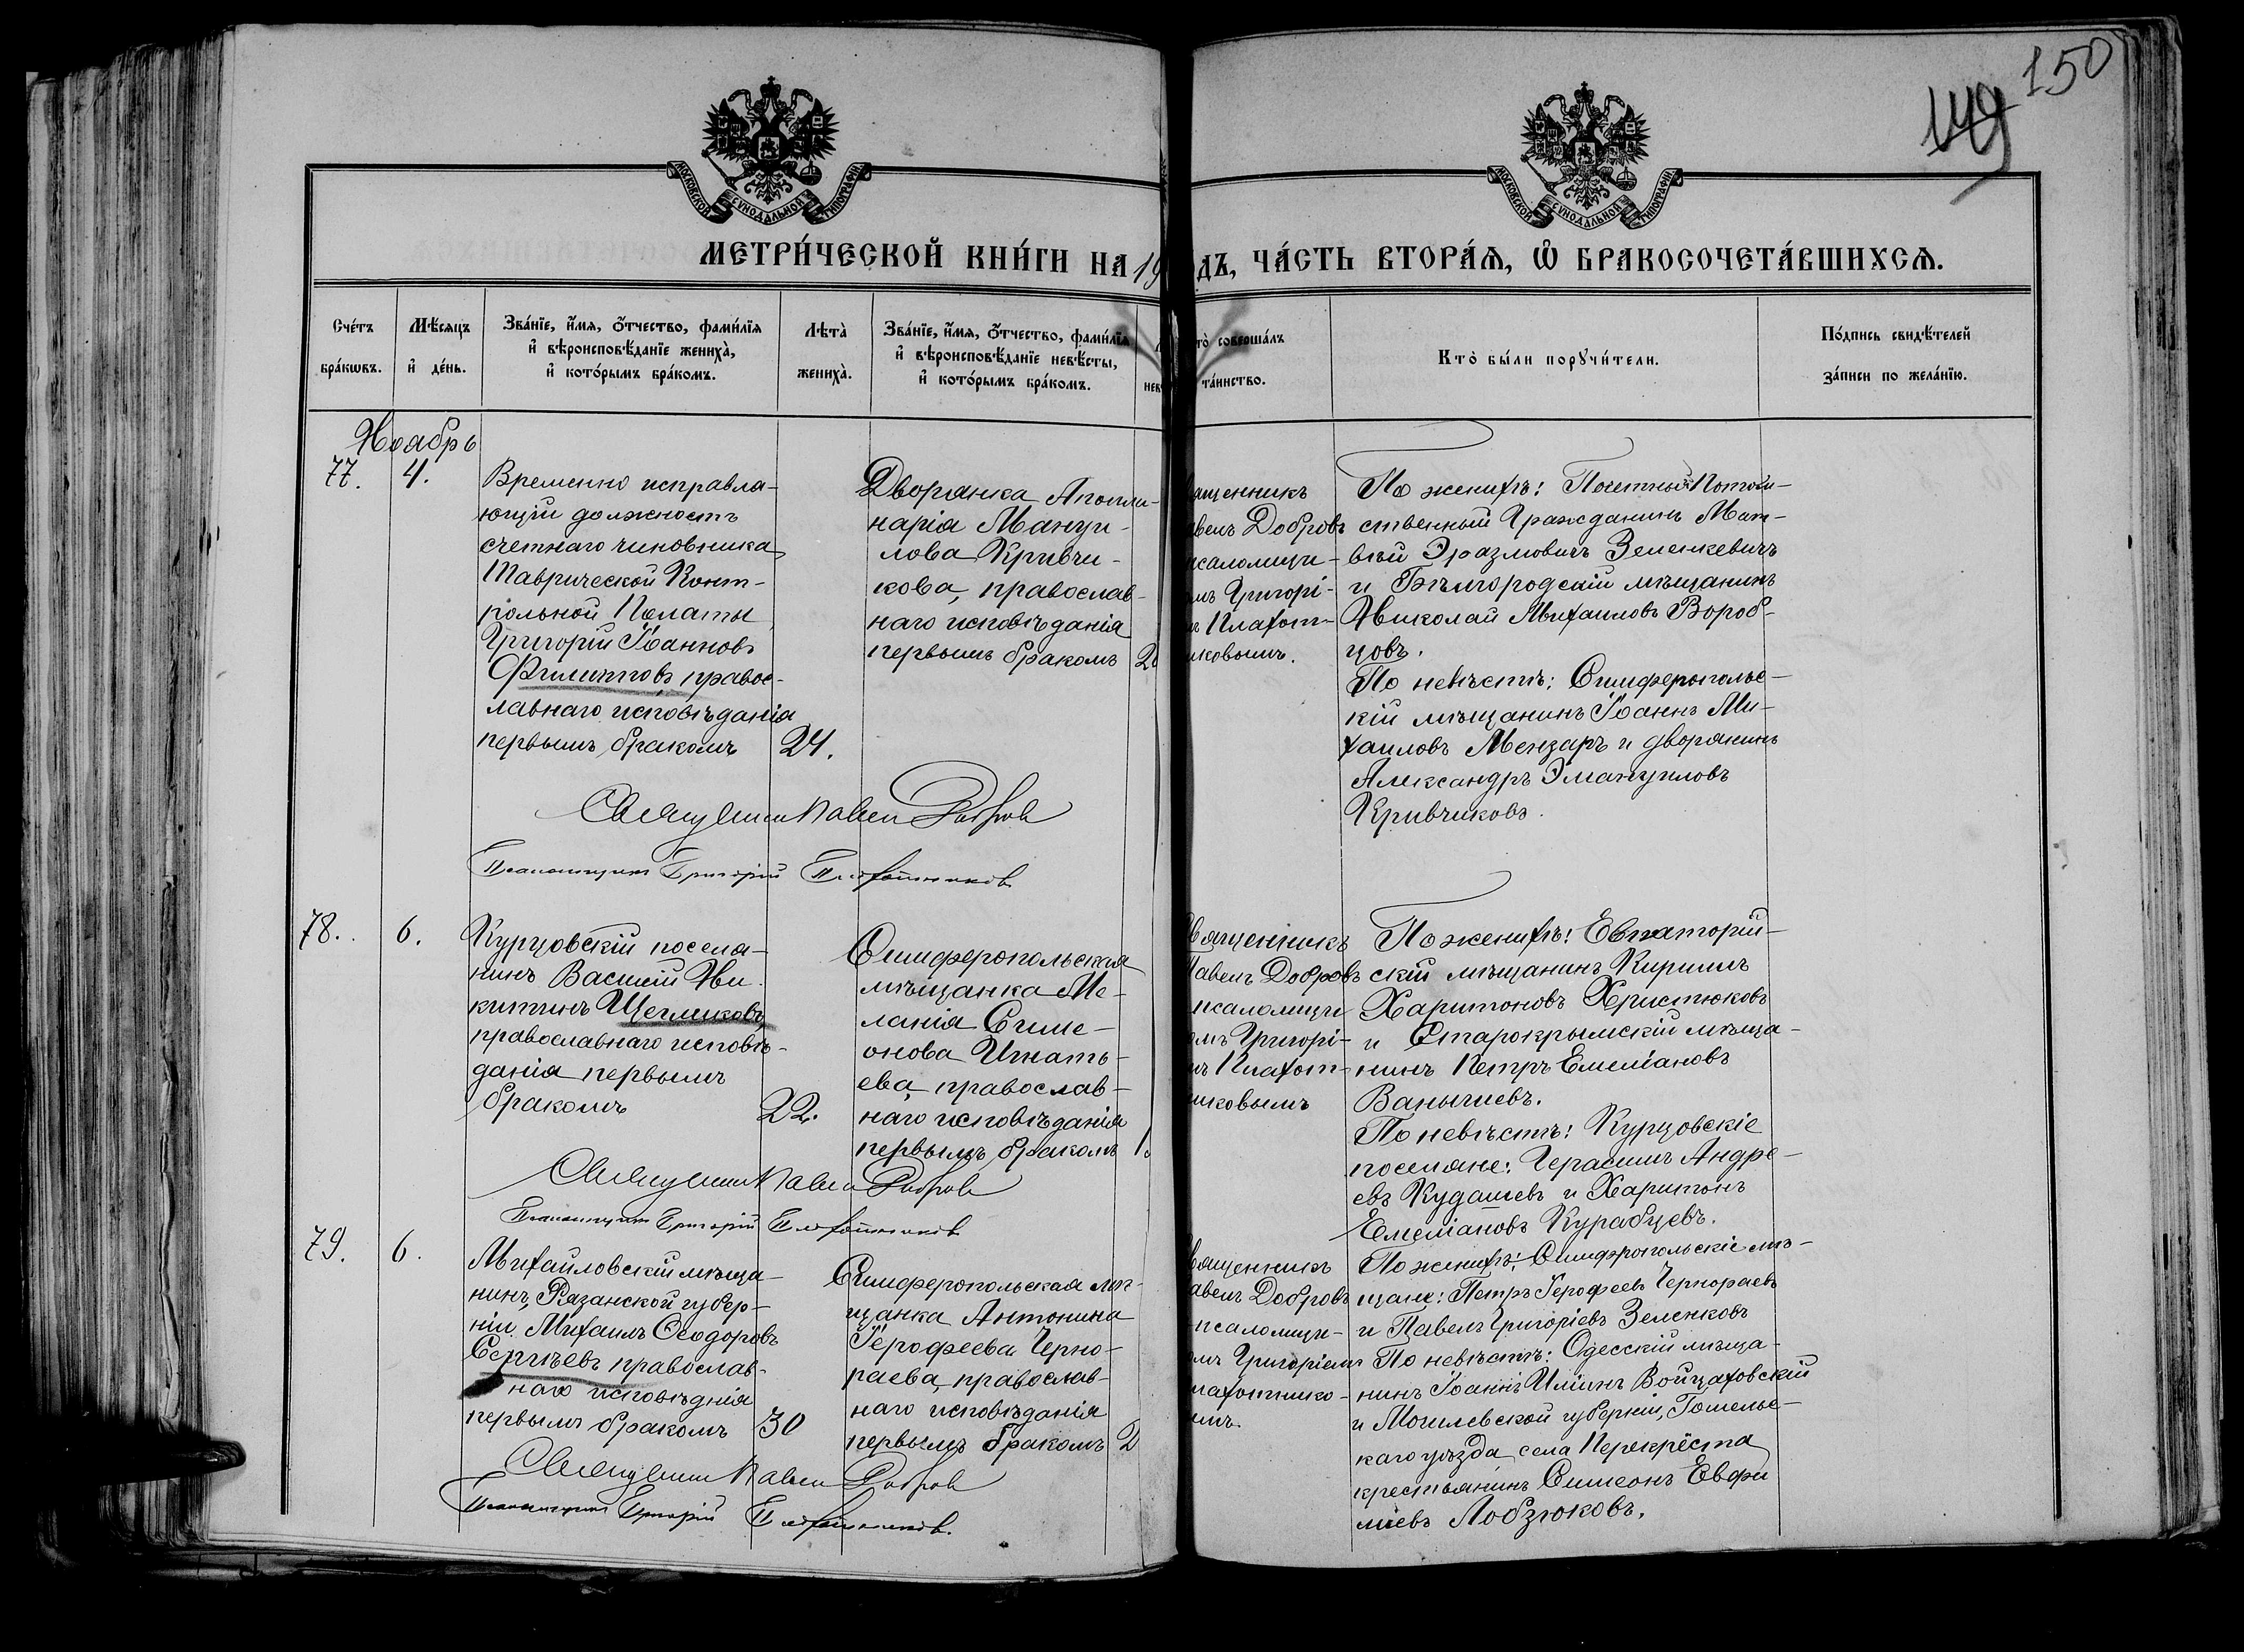 150
149
МОСКОВСКОЙ СѴНОДАЛЬНОЙ ТИПОГРАФІИ
МОСКОВСКОЙ СѴНОДАЛЬНОЙ ТИПОГРАФІИ
МЕТРИ́ЧЕСКОЙ КНИ́ГИ НА 19
ДЪ, ЧА́СТЬ ВТОРА́Ѧ, Ѽ БРАКОСОЧЕТА́ВШИХСѦ.
Сче́тъ
бра́кѡвъ.
Мѣ́сяцъ
и҆ де́нь.
Зва́нїе, и҆́мѧ, ѻ҆́тчество, фами́лїѧ
и҆ вѣроисповѣ́данїе жениха̀,
и҆ кото́рымъ бра́комъ.
Лѣта̀
жениха̀.
Зва́нїе, и҆́мѧ, ѻ҆́тчество, фами́лїѧ
и҆ вѣроисповѣ́данїе невѣ́сты,
и҆ кото́рымъ бра́комъ.
нев
то̀ соверша́лъ
та́инство.
Кто̀ бы́ли порꙋчи́тели.
По́дпись свидѣ́телей
за́писи по жела́нїю.
Ноябрь
77.
4.
Временно исправля-
ющій должность
счетнаго чиновника
Таврической Конт-
рольной Палаты
Григорій Іоанновъ
Филипповъ правос-
лавнаго исповѣданія
первымъ бракомъ
24.
Дворянка Аполли-
нарія Мануи-
лова Кривчи-
кова, православ-
наго исповѣданія
первымъ бракомъ
2
ященникъ
авелъ Добровъ
псаломщи-
омъ Григорі-
Плахот-
никовымъ.
По женихѣ: Почетный Потом-
ственный Гражданинъ Мат-
вѣй Эразмовичъ Зеленкевичъ
и Бѣлгородскій мѣщанинъ
Николай Михаиловъ Вороб-
цовъ.
По невѣстѣ: Симферопольс-
кій мѣщанинъ Іоаннъ Ми-
хаиловъ Мензаръ и дворянинъ
Александръ Эмануиловъ
Кривчиковъ.
Священникъ Павелъ Добровъ
Псаломщикъ Григорій Плахотниковъ
78.
6.
Курцовскій поселя-
нинъ Василій Ни-
китинъ Щегликовъ,
православнаго исповѣ-
данія первымъ
бракомъ
22.
Симферопольская
мѣщанка Ме-
ланія Симе-
онова Игнать-
ева, православ-
наго исповѣданія
первымъ бракомъ
1
вященникъ
Павелъ Добровъ
псаломщи
омъ Григорі-
Плахот-
никовымъ
По женихѣ: Евпаторій-
скій мѣщанинъ Кириллъ
Харитоновъ Христюковъ
и Старокрымскій мѣща-
нинъ Петръ Емеліановъ
Ванычевъ.
По невѣстѣ: Курцовскіе
поселяне: Герасимъ Андре-
евъ Кудашевъ и Харитонъ
Емеліановъ Курабцевъ.
Священникъ Павелъ Добровъ
Псаломщикъ Григорій Плахотниковъ
79.
6.
Михайловскій мѣща-
нинъ, Рязанской губер-
ніи, Михаилъ Ѳеодоровъ
Сергѣевъ православ-
наго исповѣднія
первымъ бракомъ
30
Симферопольская мѣ-
щанка Антонина
Іерофеева Черно-
раева, православ-
наго исповѣданія
первымъ бракомъ
2
вященникъ
авелъ Добровъ
псаломщи-
омъ Григоріемъ
лахотнико-
ымъ.
По женихѣ: Симферопольскіе мѣ-
щане: Петръ Іерофеевъ Чернораевъ
и Павелъ Григоріевъ Зеленковъ
По невѣстѣ: Одесскій мѣща-
нинъ Іоаннъ Иліинъ Войцаховскій
и Могилевской губерніи, Гомельс-
каго уѣзда, села Перекрёста
крестьянинъ Симеонъ Евфи
міевъ Лобзюковъ.
Священникъ Павелъ Добровъ
Псаломщикъ Григорій Плахотниковъ.